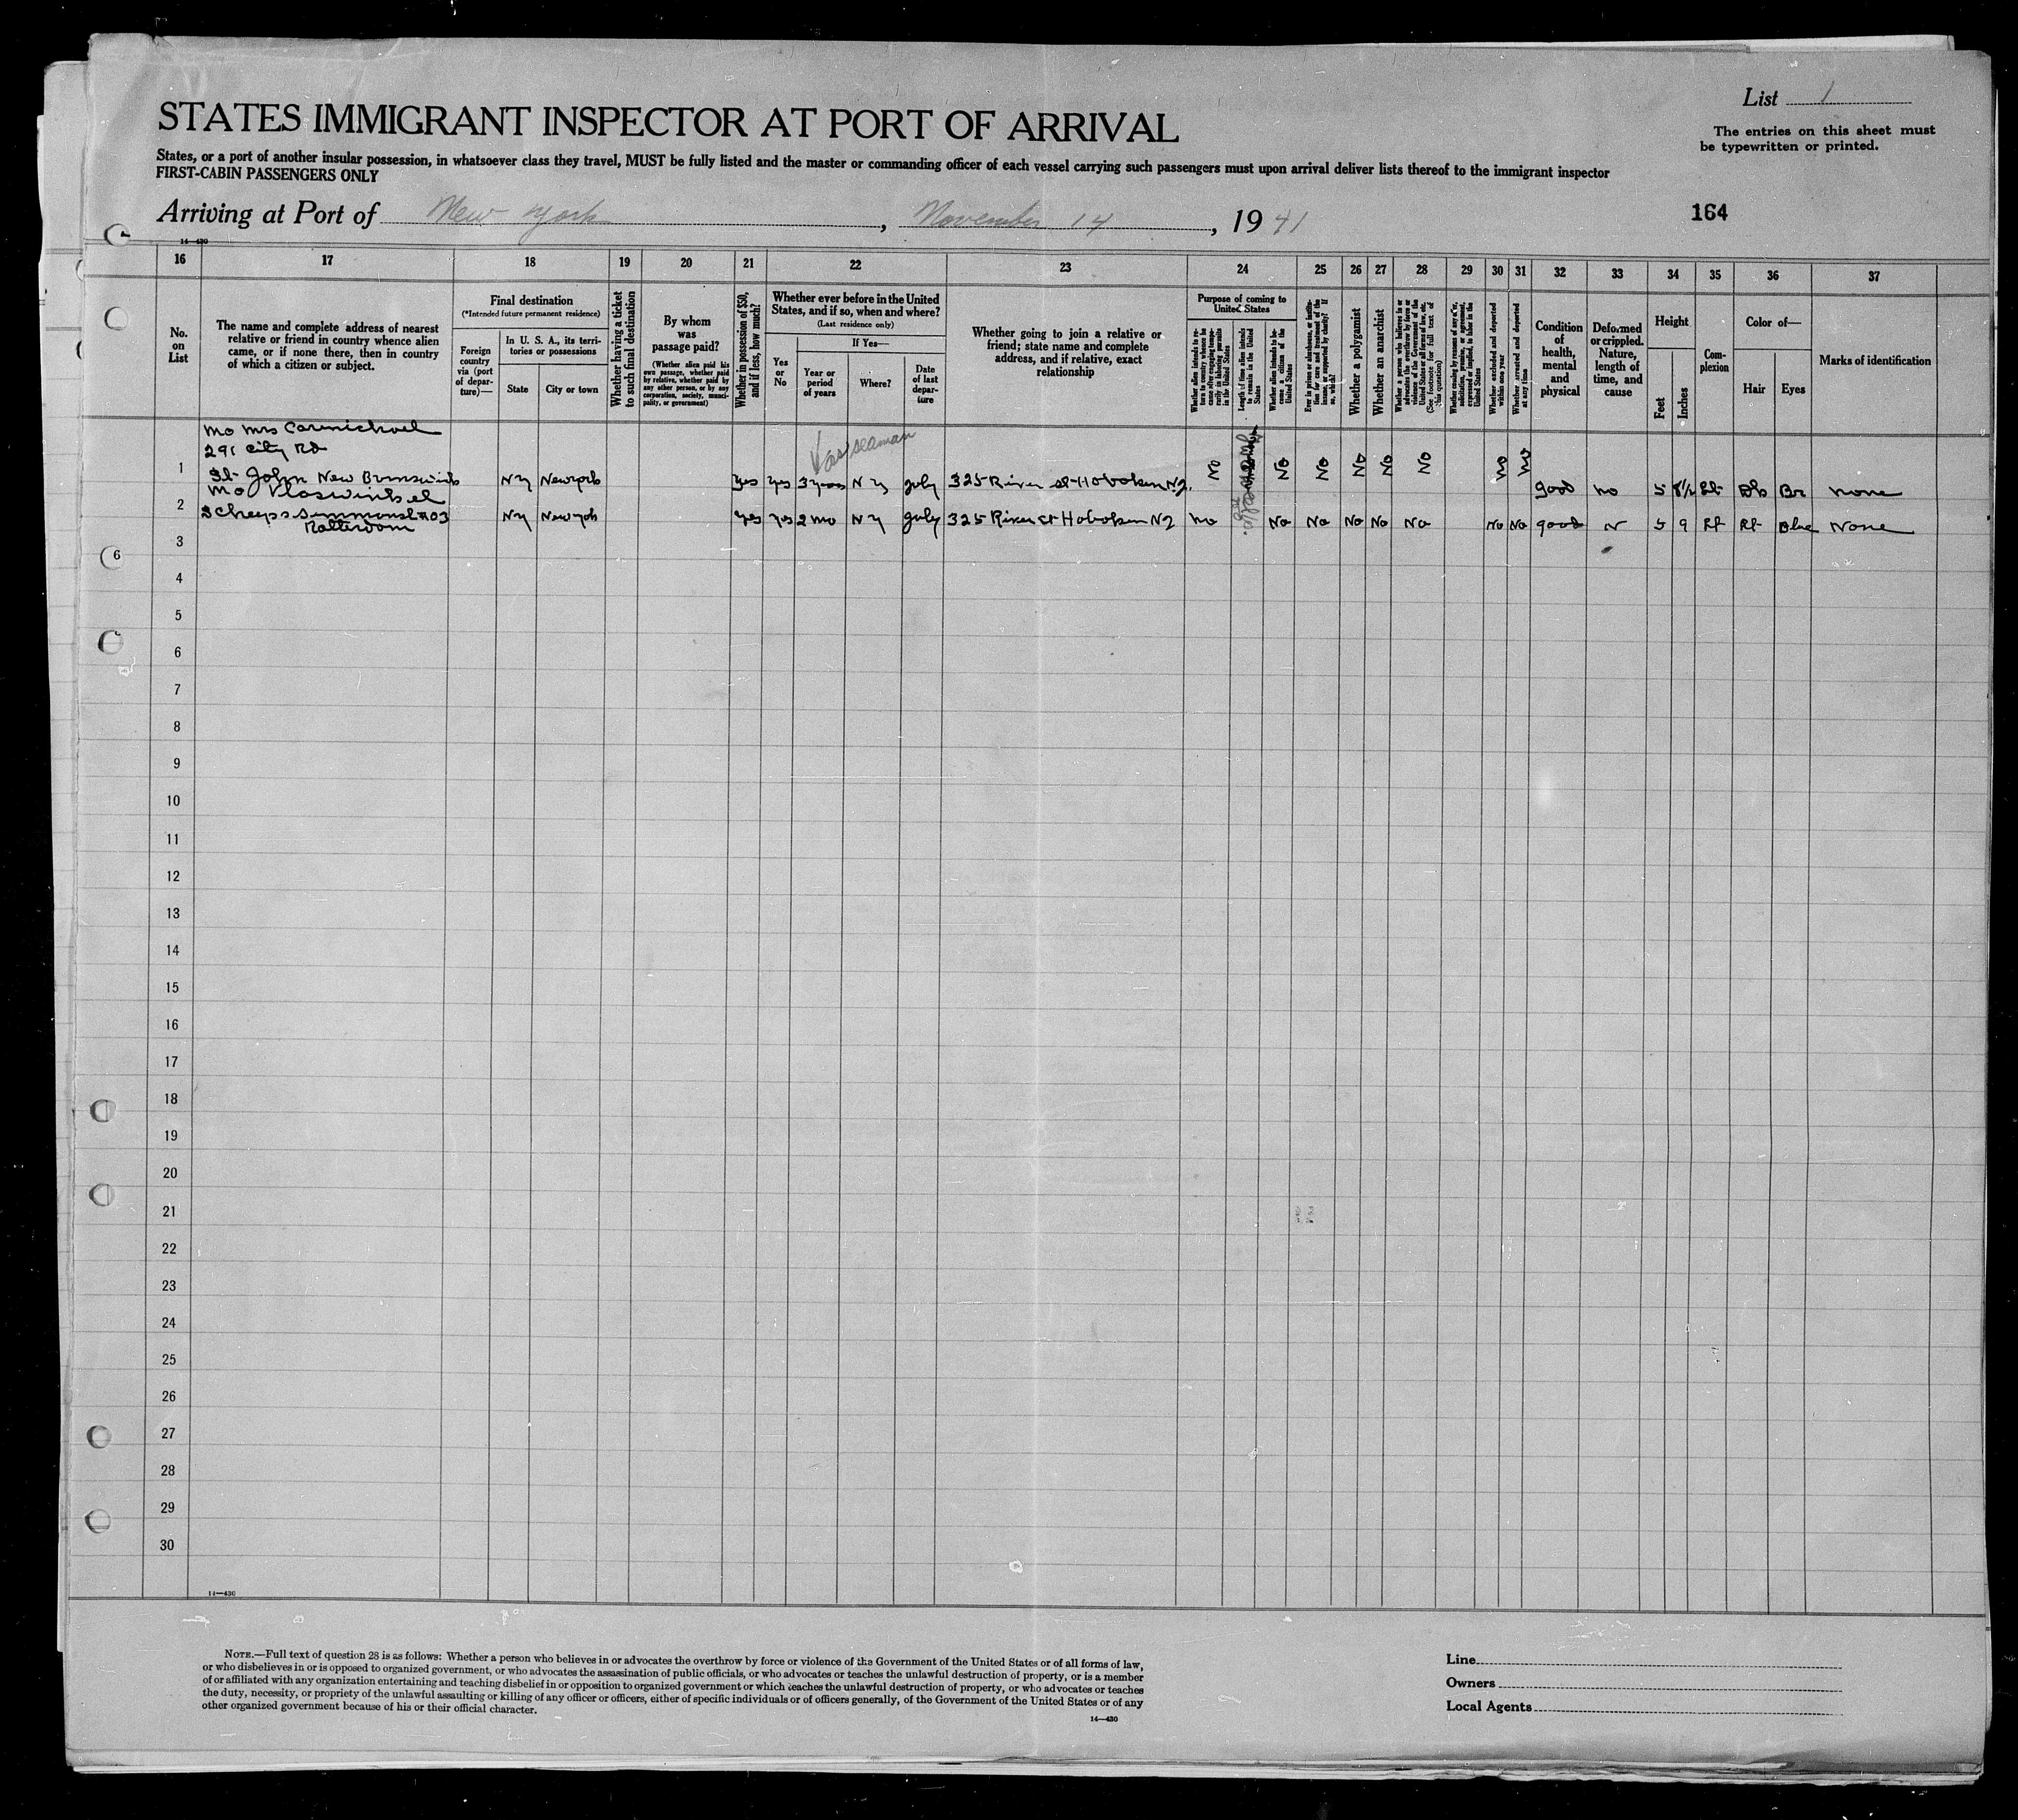 List 1
STATES IMMIGRANT INSPECTOR AT PORT OF ARRIVAL
The entries on this sheet must
be typewritten or printed.
States, or a port of another insular possession, in whatsoever class they travel, MUST be fully listed and the master or commanding officer of each vessel carrying such passengers must upon arrival deliver lists thereof to the immigrant inspector
FIRST-CABIN PASSENGERS ONLY
Arriving at Port of New York, November 14, 1941
164
14—430
16 17 18 19 20 21 22 23 24 25 26 27 28 29 30 31 32 33 34 35 36 37
No. on List
The name and complete address of nearest relative or friend in country whence alien came, or if none there, then in country of which a citizen or subject.
Final destination
(*Intended future permanent residence)
Foreign country via (port of departure)—
In U. S. A., its territories or possessions
State
City or town
Whether having a ticket to such final destination
By whom was passage paid?
(Whether alien paid his own passage, whether paid by relative, whether paid by any other person, or by any corporation, society, municipality, or government)
Whether in possession of $50, and if less, how much?
Whether ever before in the United States, and if so, when and where?
(Last residence only)
Yes or No
If Yes—
Year or period of years
Where?
Date of last departure
Whether going to join a relative or friend; state name and complete address, and if relative, exact relationship
Purpose of coming to United States
Whether alien intends to return to country whence he came after engaging temporarily in laboring pursuits in the United States
Length of time alien intends to remain in the United States
Whether alien intends to become a citizen of the United States
Ever in prison or almshouse, or institution for care and treatment of the insane, or supported by charity? If so, which?
Whether a polygamist
Whether an anarchist
Whether a person who believes in or advocates the overthrow by force or violence of the Government of the United States or all forms of law, etc. (See footnote for full text of this question)
Whether coming by reason of any offer, solicitation, promise, or agreement, expressed or implied, to labor in the United States
Whether excluded and deported within one year
Whether arrested and deported at any time
Condition of health, mental and physical
Deformed or crippled. Nature, length of time, and cause
Height
Feet
Inches
Complexion
Color of—
Hair
Eyes
Marks of identification
Mo Mrs Carmichael
291 City Rd
as seaman
1 St John New Brunswick NY New york Yes Yes 3 years NY July 325 River St Hoboken NJ. No No No No No No No No Good No 5 8½ none
Mo
2 NY New york Yes Yes 2 mo NY July 325 River St Hoboken NJ No No No No No No No No good 5 9 Blue None
Rotterdam
3
4
5
6
6
7
8
9
10
11
12
13
14
15
16
17
18
19
20
21
22
23
24
25
26
27
28
29
30
14—430
NOTE.—Full text of question 28 is as follows: Whether a person who believes in or advocates the overthrow by force or violence of the Government of the United States or of all forms of law,
or who disbelieves in or is opposed to organized government, or who advocates the assassination of public officials, or who advocates or teaches the unlawful destruction of property, or is a member
of or affiliated with any organization entertaining and teaching disbelief in or opposition to organized government or which teaches the unlawful destruction of property, or who advocates or teaches
the duty, necessity, or propriety of the unlawful assaulting or killing of any officer or officers, either of specific individuals or of officers generally, of the Government of the United States or of any
other organized government because of his or their official character.
14—430
Line
Owners
Local Agents